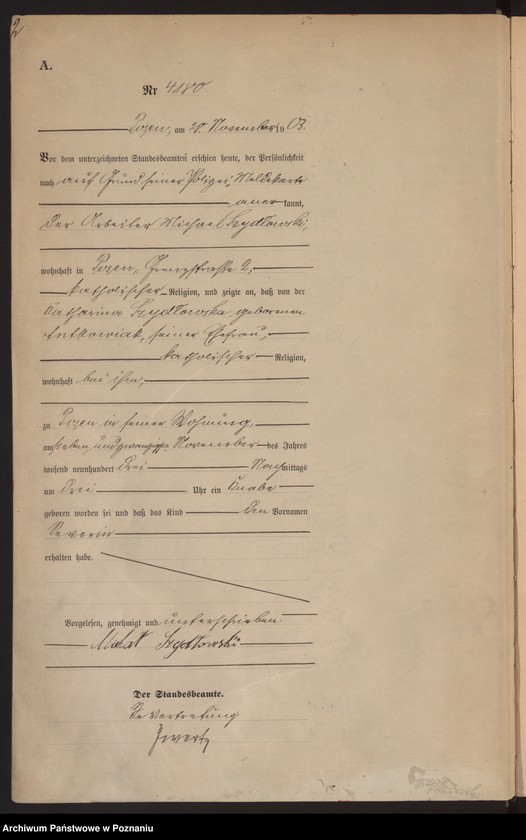 2
A.
Nr 4180
Posen, am 28. November 1903.
Vor dem unterzeichneten Standesbeamten erschien heute, der Persönlichkeit
nach auf Grund seiner Polizei-Meldekarte
anerkannt,
der Arbeiter Michael Szydlowski,
wohnhaft in Posen, 2,
katholischer Religion, und zeigte an, daß von der
Katharina Szydlowska geborenen
Antkowiak, seiner Ehefrau,
katholischer Religion,
wohnhaft bei ihm,
zu Posen in seiner Wohnung,
am sieben und zwanzigsten November des Jahres
tausend neunhundert drei Nachmittags
um drei Uhr ein Knabe
geboren worden sei und daß das Kind den Vornamen
Severin
erhalten habe.
Vorgelesen, genehmigt und unterschrieben.
Szydłowski
Der Standesbeamte.
In Vertretung
Archiwum Państwowe w Poznaniu